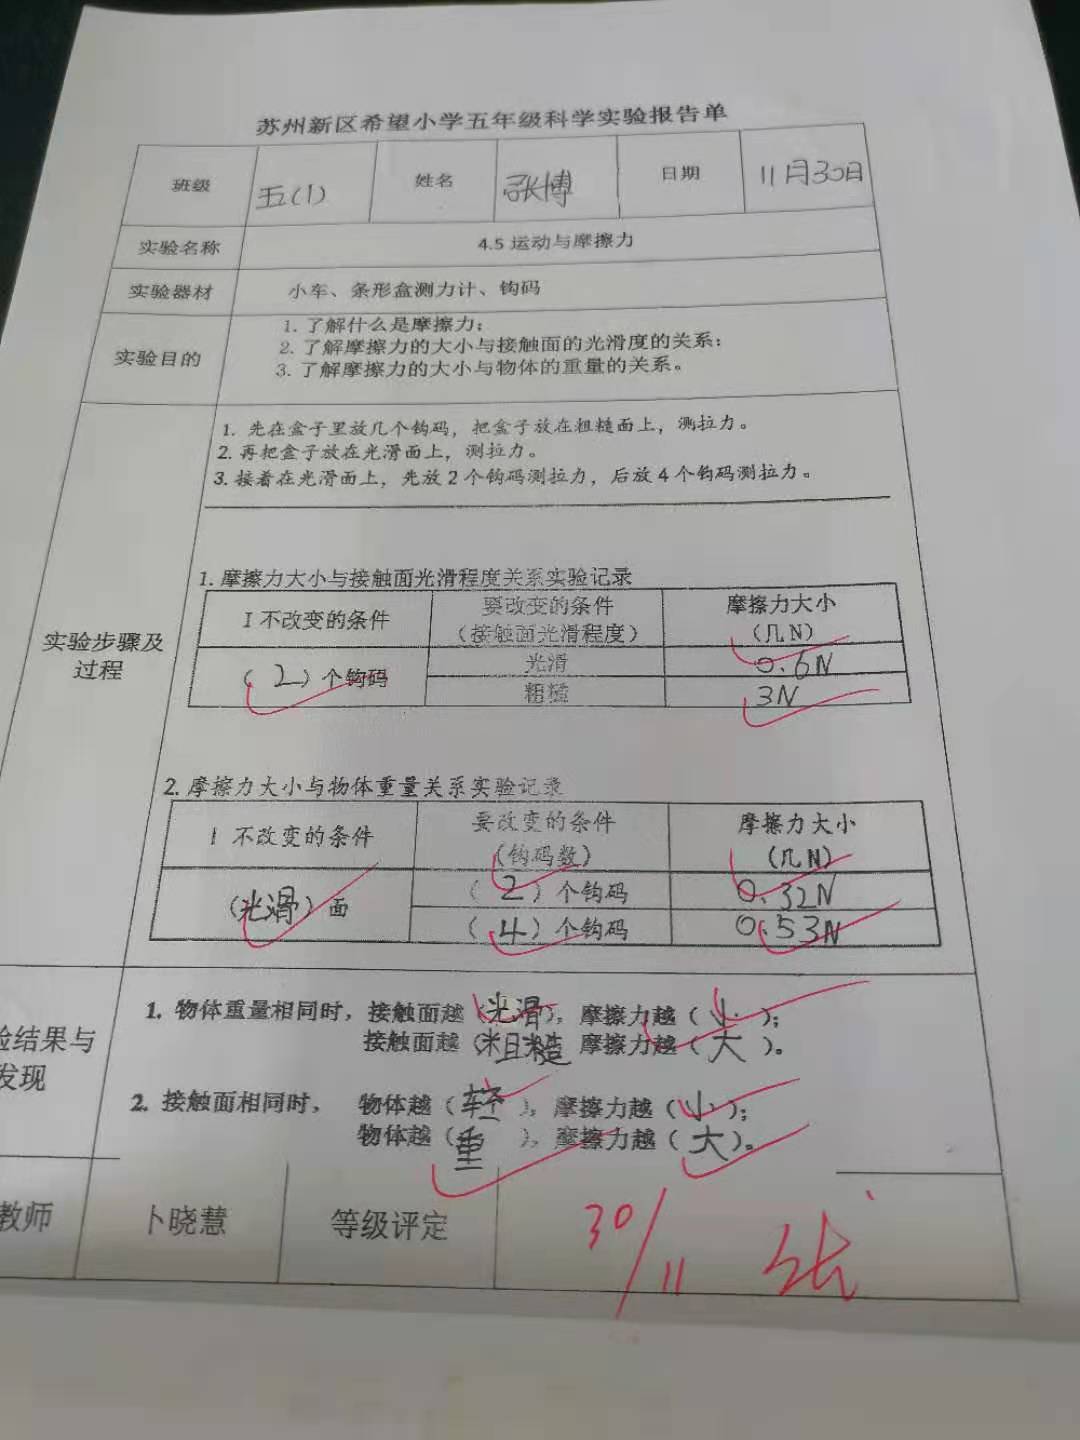 苏州新区希望小学五年级科学实验报告单
班级 五(1) 姓名 张博 日期 11月30日
实验名称 4.5 运动与摩擦力
实验器材 小车、条形盒测力计、钩码
实验目的
1. 了解什么是摩擦力;
2. 了解摩擦力的大小与接触面的光滑度的关系;
3. 了解摩擦力的大小与物体的重量的关系。
实验步骤及过程
1. 先在盒子里放几个钩码，把盒子放在粗糙面上，测拉力。
2. 再把盒子放在光滑面上，测拉力。
3. 接着在光滑面上，先放2个钩码测拉力，后放4个钩码测拉力。
1. 摩擦力大小与接触面光滑程度关系实验记录
I 不改变的条件 要改变的条件 摩擦力大小
（接触面光滑程度） （几N）
（2）个钩码 光滑 0.6N
粗糙 3N
2. 摩擦力大小与物体重量关系实验记录
I 不改变的条件 要改变的条件 摩擦力大小
（钩码数） （几N）
（光滑）面 （2）个钩码 0.32N
（4）个钩码 0.53N
验结果与
发现
1. 物体重量相同时，接触面越（光滑），摩擦力越（小）;
接触面越（粗糙 摩擦力越（大）。
2. 接触面相同时， 物体越（轻），摩擦力越（小）;
物体越（重），摩擦力越（大）。
教师 卜晓慧 等级评定 30/11